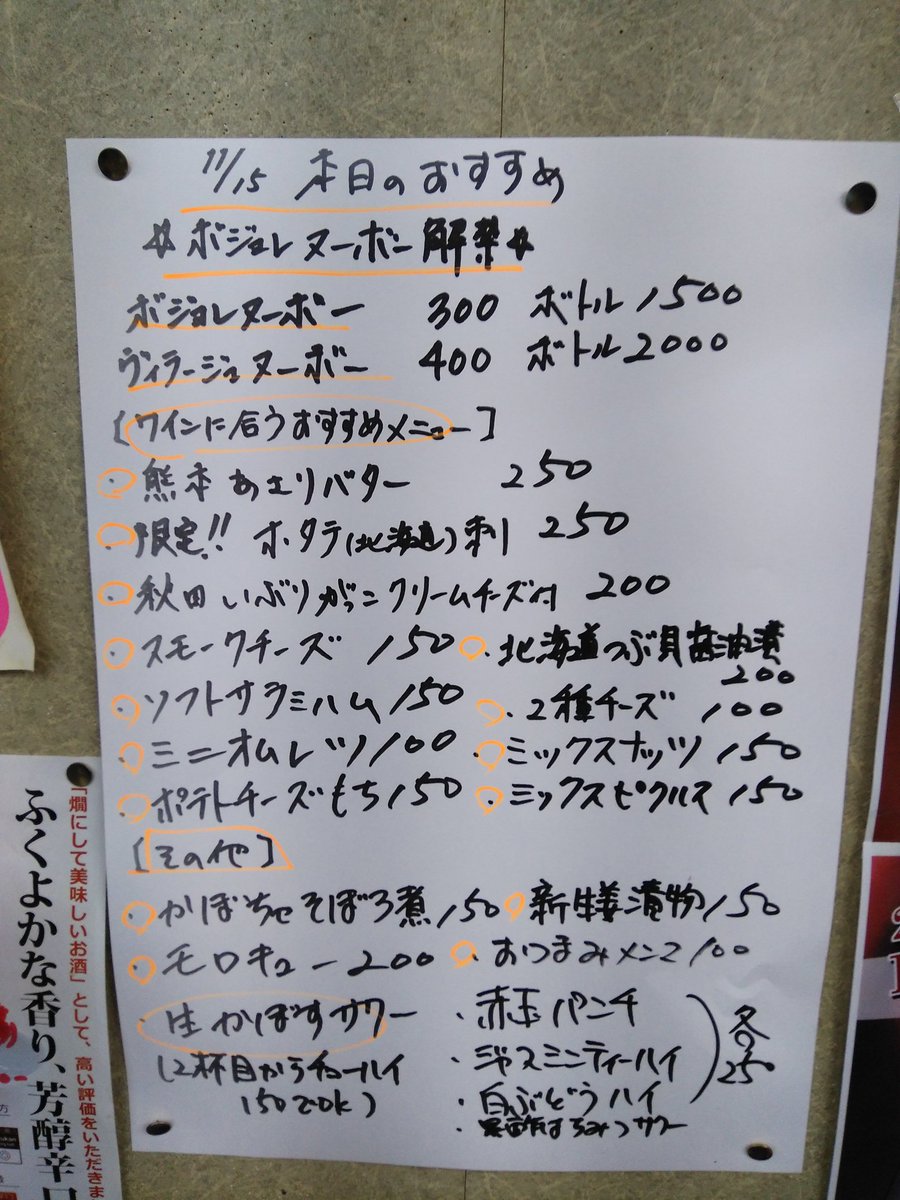 11/15 本日のおすすめ
☆ボジョレヌーボー解禁☆
ボジョレヌーボー 300 ボトル1500
ヴィラージュヌーボー 400 ボトル2000
[ワインに合うおすすめメニュー]
・熊本あさりバター 250
・限定!! ホタテ(北海道)刺 250
・秋田いぶりがっこクリームチーズ付 200
・スモークチーズ 150
・北海道つぶ貝醤油漬 200
・ソフトサラミハム 150
・2種チーズ 100
・ミニオムレツ 100
・ミックスナッツ 150
・ポテトチーズもち 150
・ミックスピクルス 150
[その他]
・かぼちゃそぼろ煮 150
・新生姜漬物 150
・モロキュー 200
・おつまみメンマ 100
生かぼすサワー
(2杯目からチューハイ
150でOK)
・赤玉パンチ
・ジャスミンティーハイ
・白ぶどうハイ
・黒酢はちみつサワー
各
「燗にして美味しいお酒」として、高い評価をいただきま
ふくよかな香り、芳醇辛口